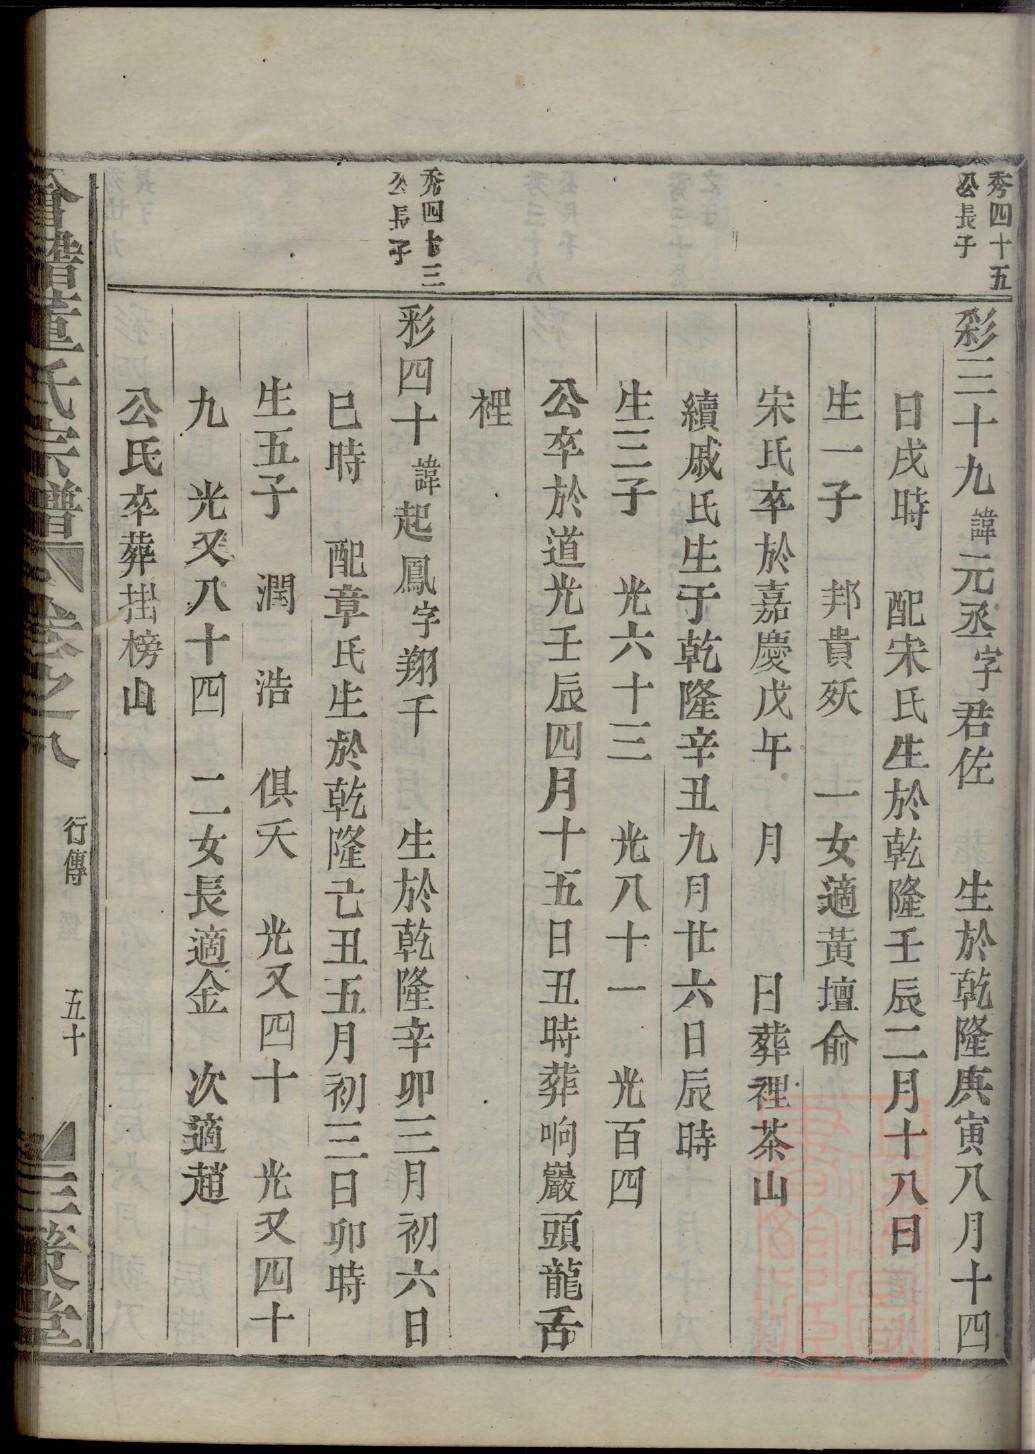 秀四十五
公長子
彩三十九諱元丞字君佐　生於乾隆庚寅八月十四
日戌時　配宋氏生於乾隆壬辰二月十八日
生一子　邦貴殀　一女適黃壇俞
宋氏卒於嘉慶戊午　月　　日葬裡茶山
續戚氏生于乾隆辛丑九月廿六日辰時
生三子　光六十三　光八十一　光百四
公卒於道光壬辰四月十五日丑時葬响巖頭龍舌
裡
秀四十三
公長子
彩四十諱起鳳字翔千　生於乾隆辛卯三月初六日
巳時　配章氏生於乾隆己丑五月初三日卯時
生五子　潤　浩　俱夭　光又四十　光又四十
九　光又八十四　二女長適金　次適趙
公氏卒葬掛榜山
會譜董氏宗譜　卷之八　行傳　五十　三策堂